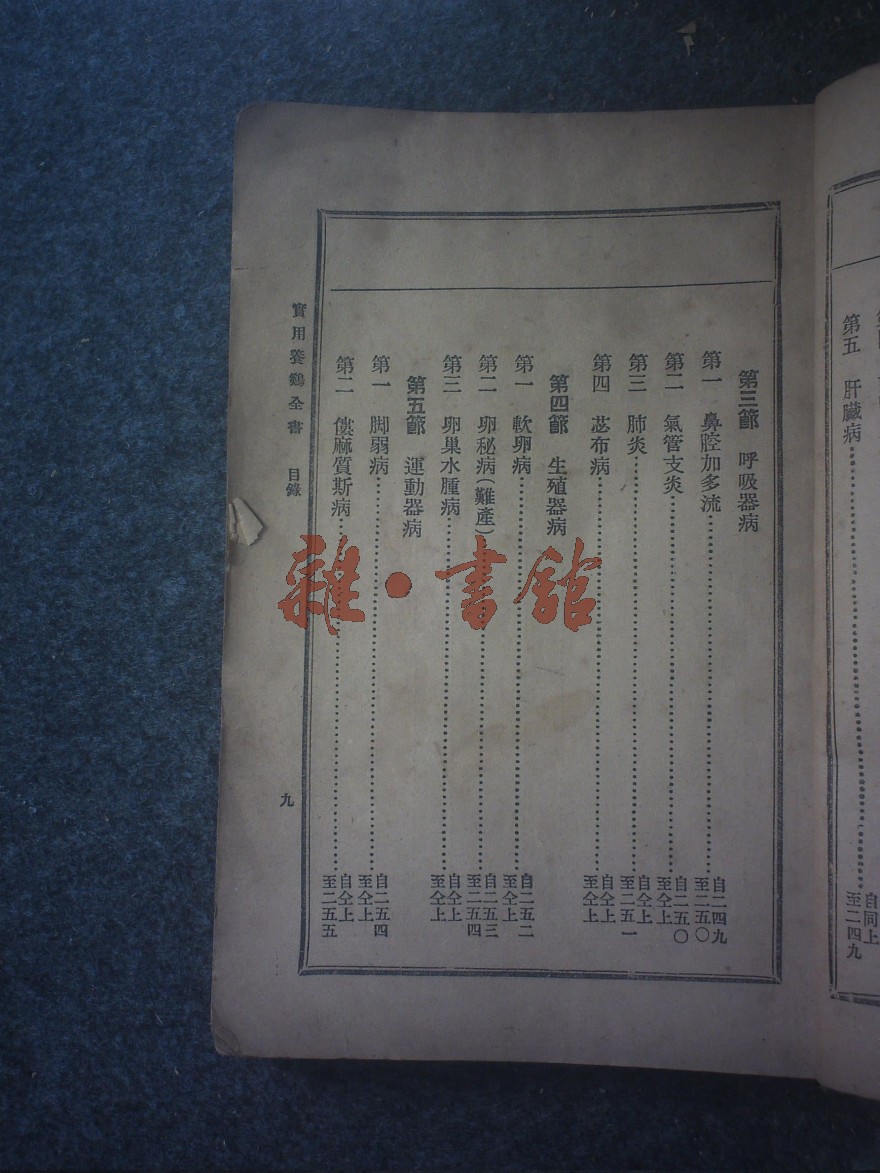 第五　肝臟病…………自同上至二四九
第三節　呼吸器病
第一　鼻腔加多流…………自二四九至二五〇
第二　氣管支炎…………自二五〇至仝上
第三　肺炎…………自仝上至二五一
第四　苾布病…………自仝上至仝上
第四節　生殖器病
第一　軟卵病…………自二五二至仝上
第二　卵秘病(難產)…………自二五三至二五四
第三　卵巢水腫病…………自仝上至仝上
第五節　運動器病
第一　脚弱病…………自二五四至仝上
第二　僂麻質斯病…………自仝上至二五五
實用養鷄全書　目錄
九
雜·書館